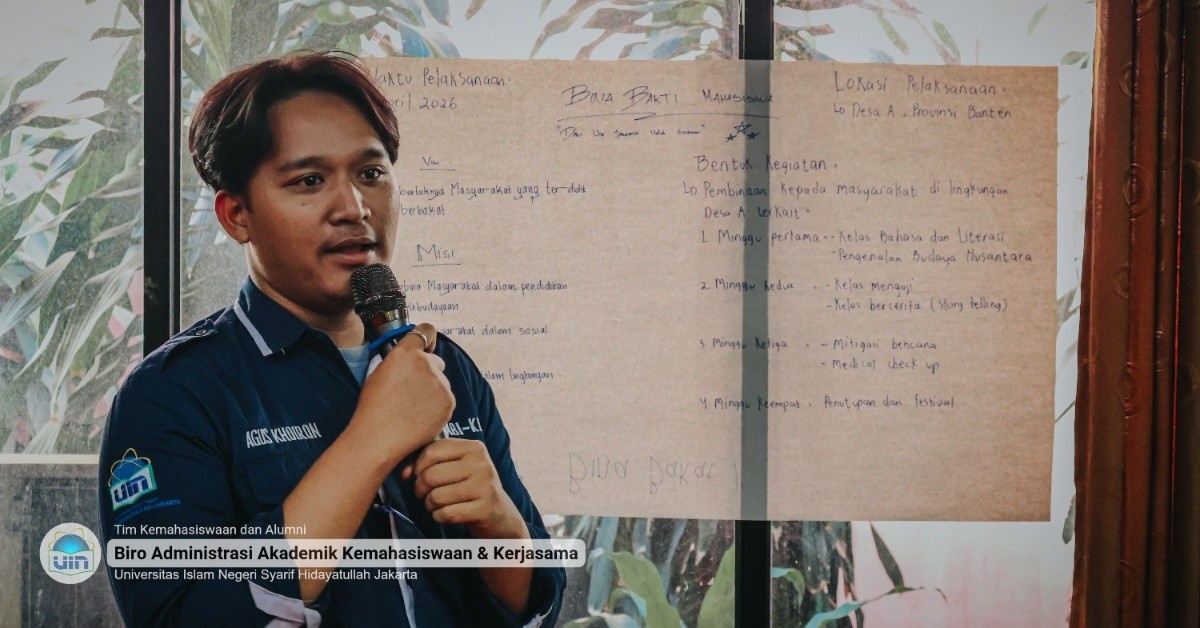 Waktu Pelaksanaan.
April 2026
BINA BAKTI MAHASISWA
"Dari
Lokasi Pelaksanaan.
Desa A. Provinsi Banten
Visi.
bentuknya Masyarakat yang terdidik
berbakat
Misi
bina Masyarakat dalam pendidikan
kebudayaan
masyarakat dalam sosial
dalam lingkungan
Bentuk Kegiatan =
Pembinaan Kepada masyarakat di lingkungan
Desa A terkait =
1. Minggu pertama - - Kelas Bahasa dan Literasi
- Pengenalan Budaya Nusantara
2. Minggu Kedua . - Kelas mengaji
- Kelas bercerita (story telling)
3. Minggu Ketiga . - Mitigasi bencana
- Medical check up
4 Minggu Keempat . Penutupan dan festival
Bina Bakat
AGUS KHOIRON
MBI-KI
UIN
Tim Kemahasiswaan dan Alumni
UIN
Biro Administrasi Akademik Kemahasiswaan & Kerjasama
Universitas Islam Negeri Syarif Hidayatullah Jakarta